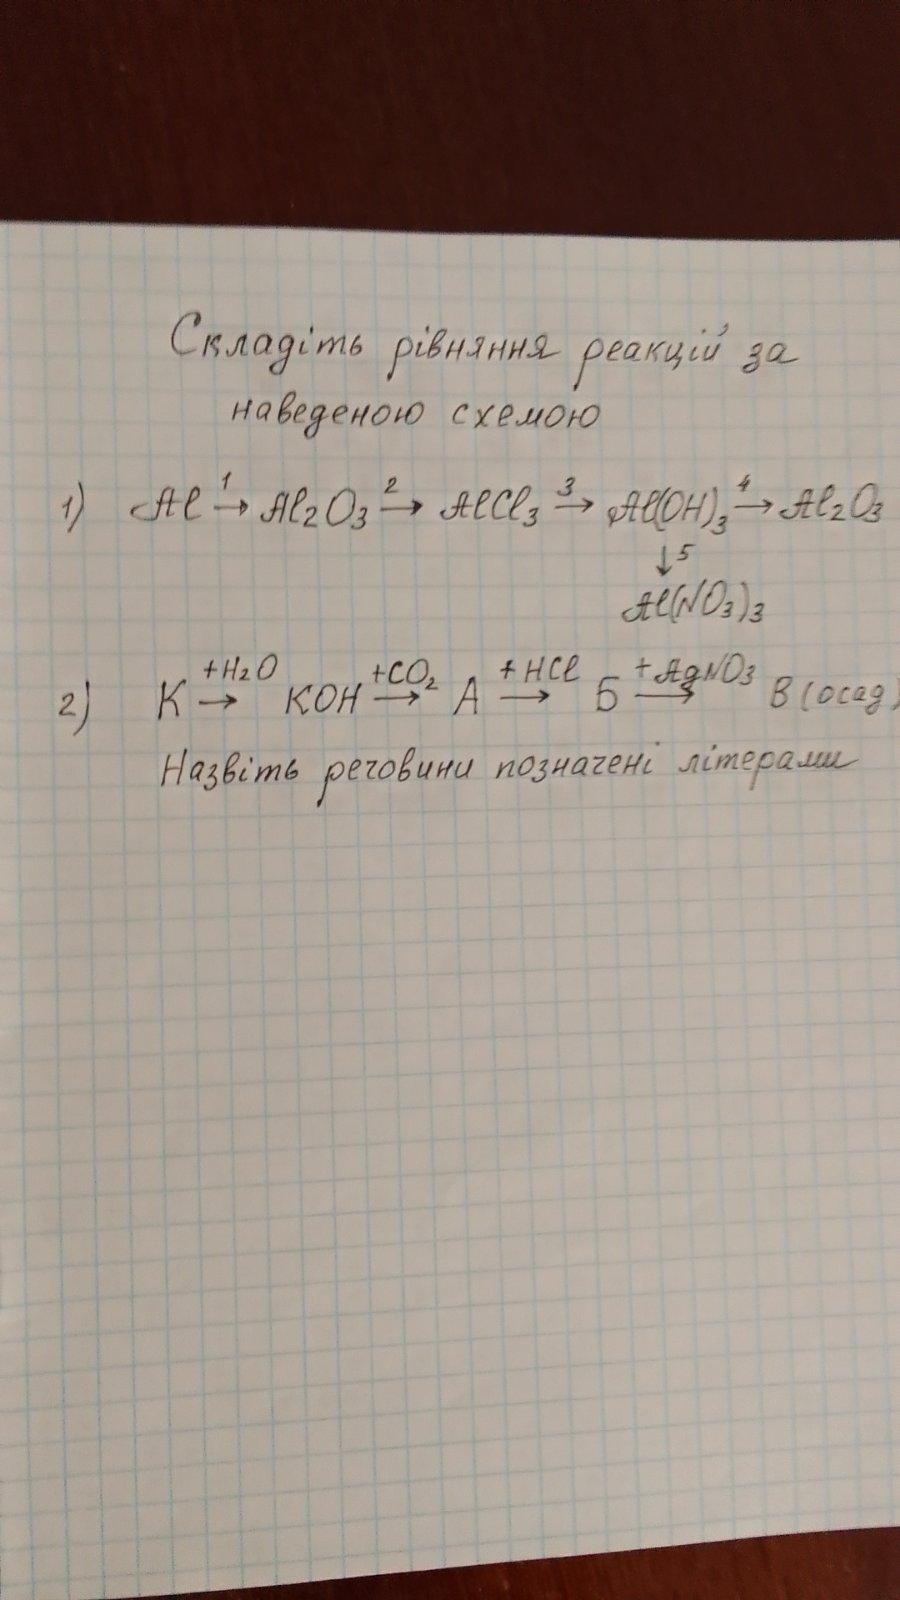 Складіть рівняння реакцій за
наведеною схемою
1) Al →1 Al₂O₃ →2 AlCl₃ →3 Al(OH)₃ →4 Al₂O₃
↓5
Al(NO₃)₃
2) K +H₂O→ KOH +CO₂→ А +HCl→ Б +AgNO₃→ В (осад)
Назвіть речовини позначені літерами